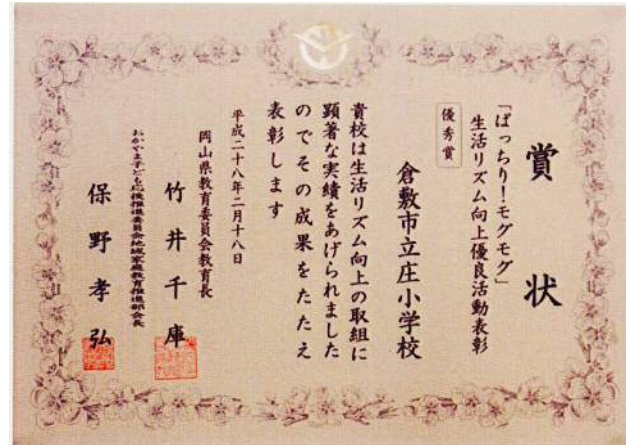 賞状
「ぱっちり!モグモグ」
生活リズム向上優良活動表彰
優秀賞
倉敷市立庄小学校
貴校は生活リズム向上の取組に
顕著な実績をあげられました
のでその成果をたたえ
表彰します
平成二十八年二月十八日
岡山県教育委員会教育長
竹井千庫
おかやま子ども応援推進委員会地域家庭教育推進部会長
保野孝弘